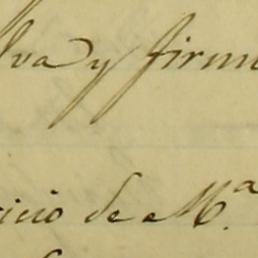 lva y firm
icio de M.ª